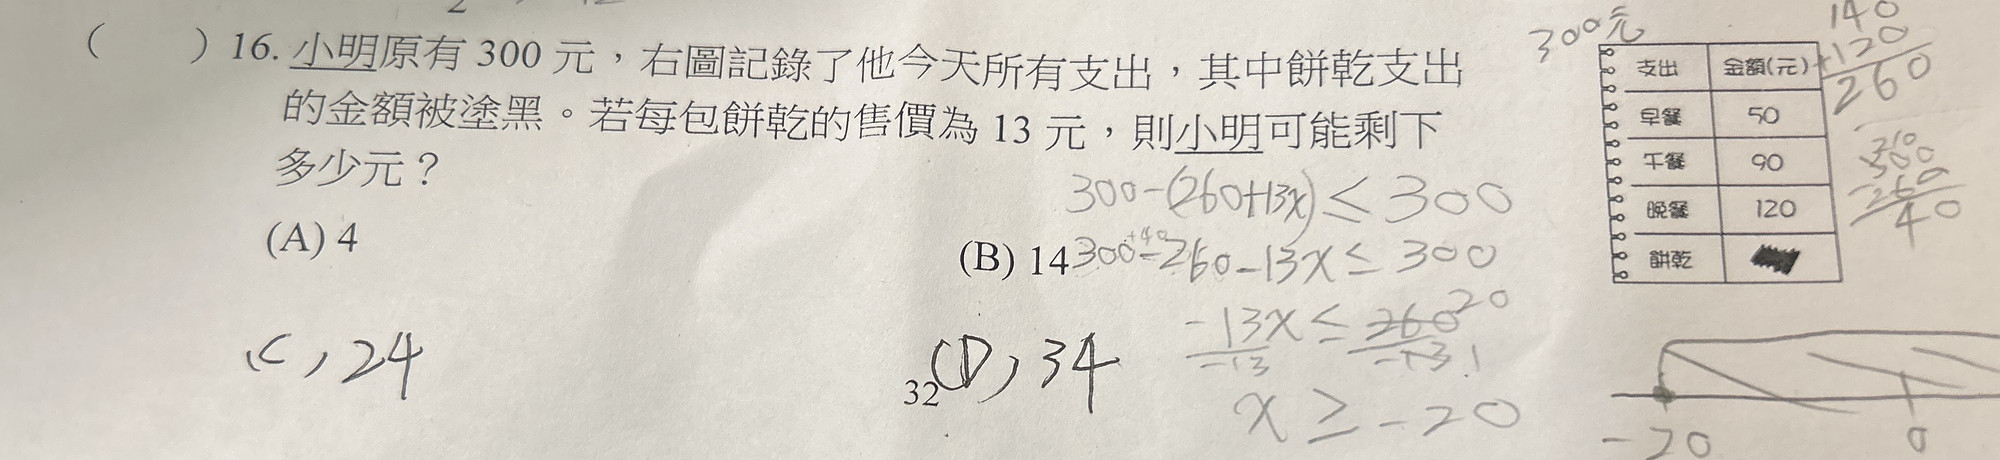 ( ) 16. 小明原有 300 元，右圖記錄了他今天所有支出，其中餅乾支出
的金額被塗黑。若每包餅乾的售價為 13 元，則小明可能剩下
多少元？
(A) 4
(B) 14
(C) 24
(D) 34
32
300元
支出 金額(元)
早餐 50
午餐 90
晚餐 120
餅乾
140
+120
260
300
-260
40
300-(260+13x)≤300
300-260-13x≤300
+40
-13x≤260 20
-13 -13 1
x≥-20
-20 0